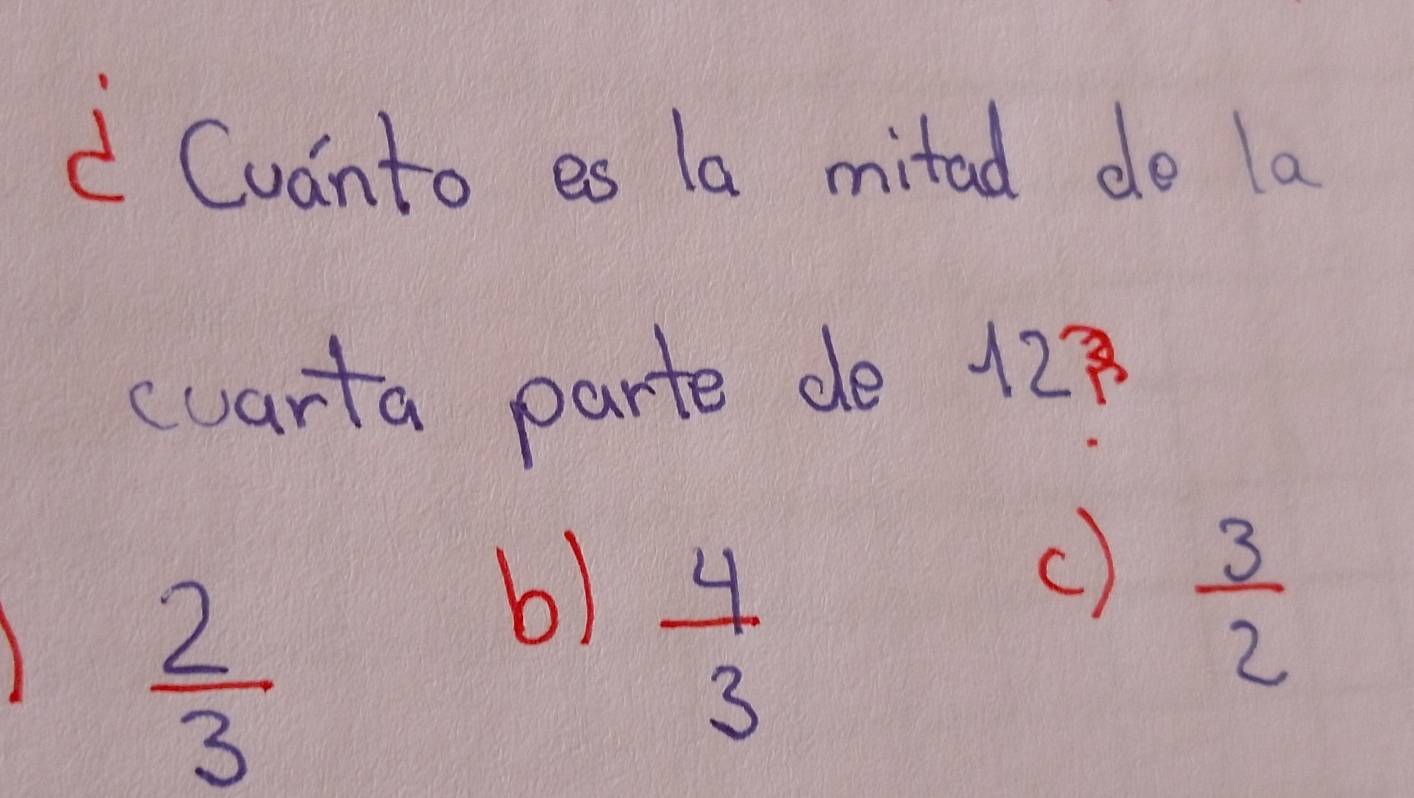 ¿Cuánto es la mitad de la
cuarta parte de 12?
) 2/3 b) 4/3 c) 3/2